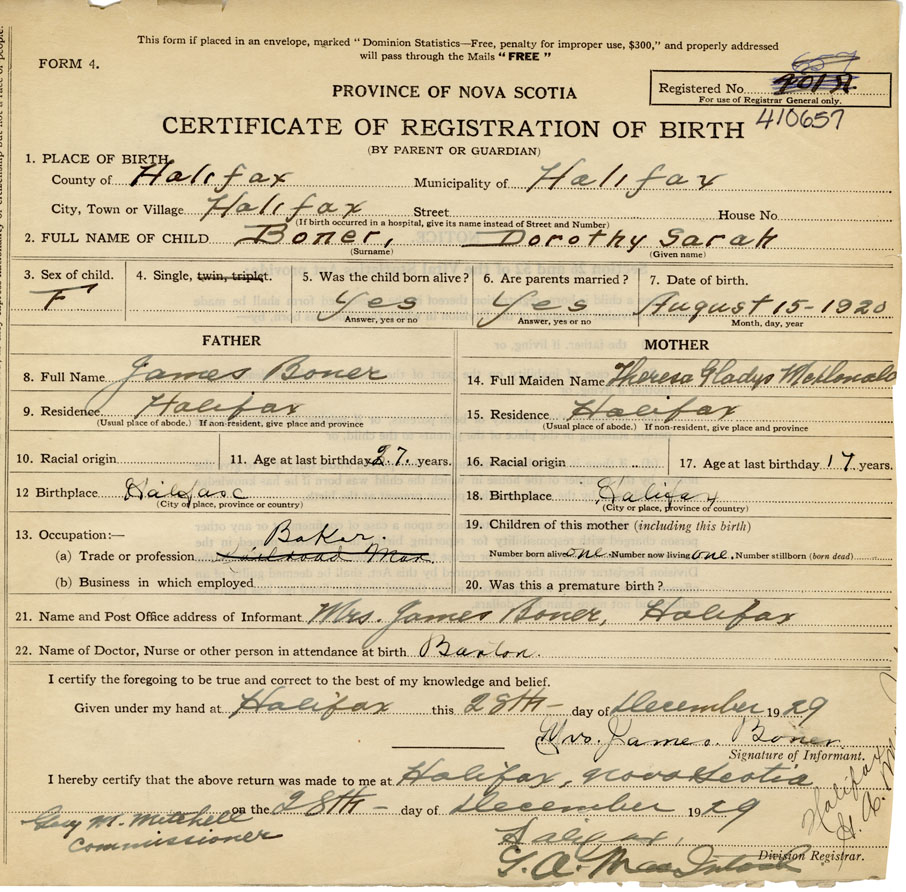 This form if placed in an envelope, marked "Dominion Statistics—Free, penalty for improper use, $300," and properly addressed
will pass through the Mails "FREE"
FORM 4.
657
Registered No. 901
For use of Registrar General only.
410657
PROVINCE OF NOVA SCOTIA
CERTIFICATE OF REGISTRATION OF BIRTH
(BY PARENT OR GUARDIAN)
1. PLACE OF BIRTH
County of Halifax Municipality of Halifax
City, Town or Village Halifax Street House No
(If birth occurred in a hospital, give its name instead of Street and Number)
2. FULL NAME OF CHILD Boner, Dorothy Sarah
(Surname) (Given name)
3. Sex of child. 4. Single, twin, triplet. 5. Was the child born alive? 6. Are parents married? 7. Date of birth.
F Yes Yes August 15-1920
Answer, yes or no Answer, yes or no Month, day, year
FATHER
8. Full Name James Boner
9. Residence Halifax
(Usual place of abode.) If non-resident, give place and province
10. Racial origin 11. Age at last birthday 27. years.
12 Birthplace Halifax
(City or place, province or country)
13. Occupation:— Baker.
(a) Trade or profession Railroad Man
(b) Business in which employed
MOTHER
14. Full Maiden Name Theresa Gladys McDonald
15. Residence Halifax
(Usual place of abode.) If non-resident, give place and province
16. Racial origin 17. Age at last birthday 17 years.
18. Birthplace Halifax
(City or place, province or country)
19. Children of this mother (including this birth)
Number born alive one. Number now living one. Number stillborn (born dead)
20. Was this a premature birth?
21. Name and Post Office address of Informant Mrs. James Boner, Halifax
22. Name of Doctor, Nurse or other person in attendance at birth Barton.
I certify the foregoing to be true and correct to the best of my knowledge and belief.
Given under my hand at Halifax this 28th day of December 1929
Mrs. James. Boner.
Signature of Informant.
I hereby certify that the above return was made to me at Halifax, Nova Scotia
on the 28th day of December 1929
Geo M. Mitchell
Commissioner
Halifax,
G. A. MacIntosh
Division Registrar.
Halifax